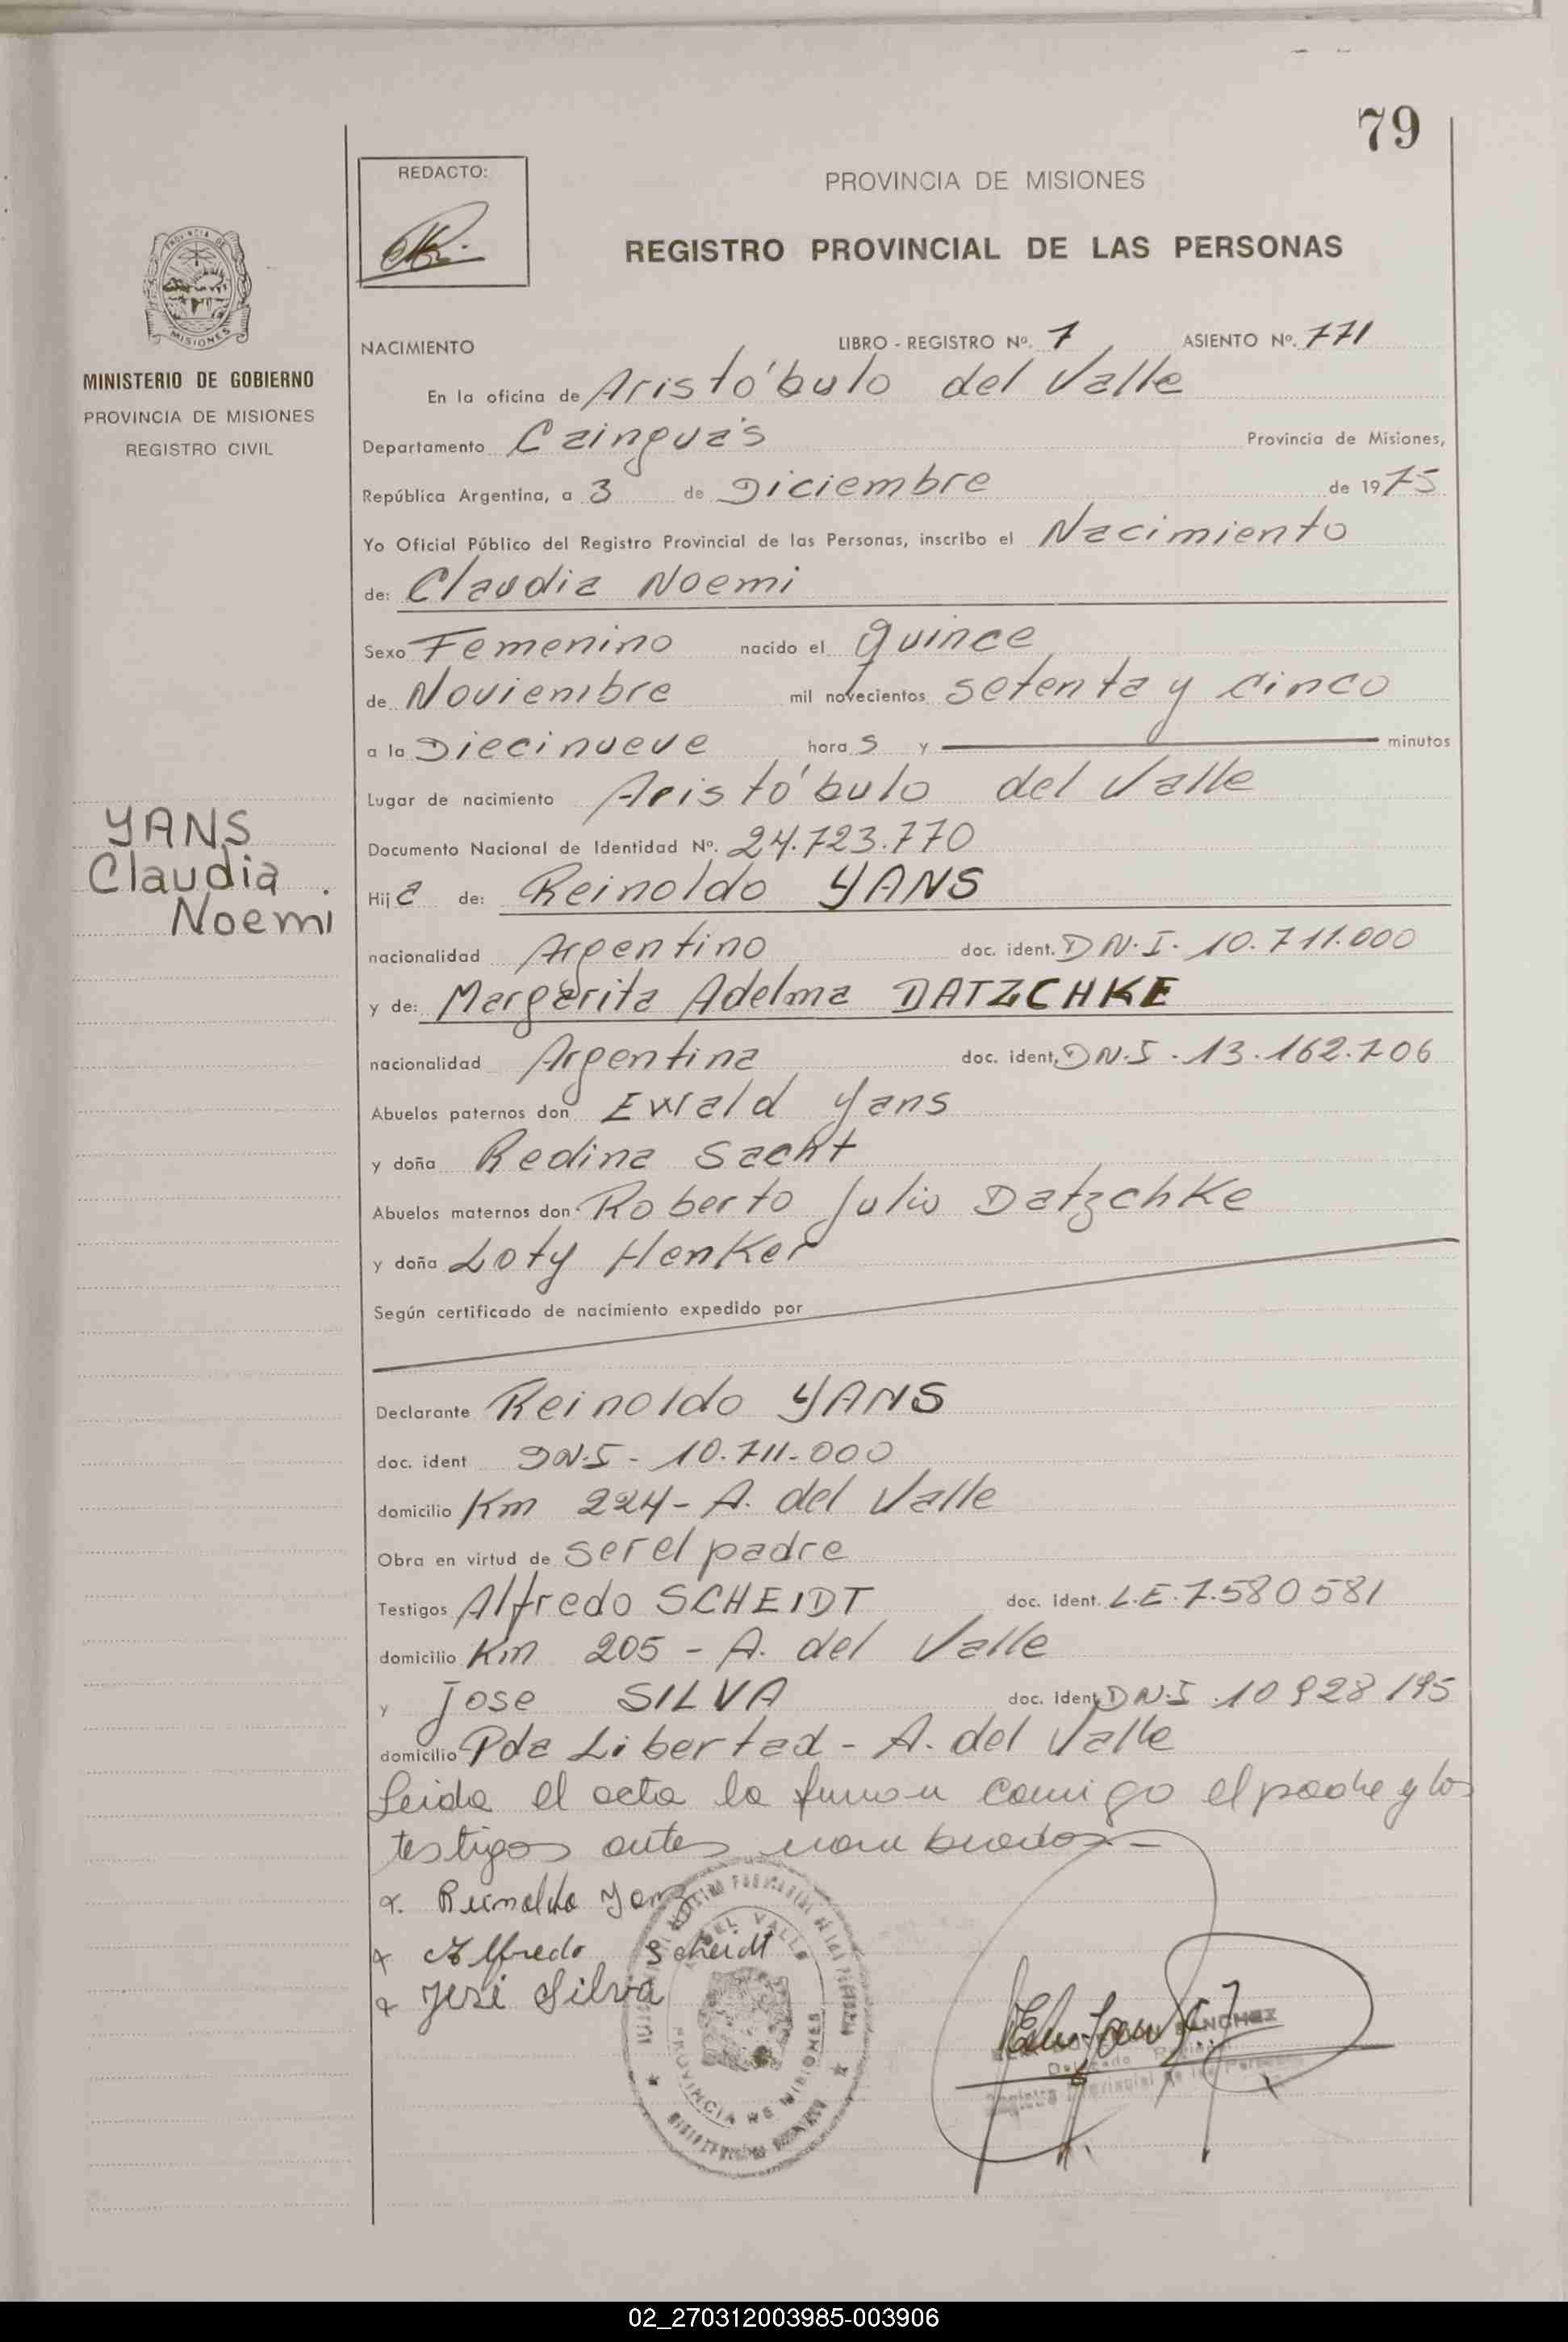 79
REDACTO:
PROVINCIA DE MISIONES
REGISTRO PROVINCIAL DE LAS PERSONAS
PROVINCIA DE
MISIONES
MINISTERIO DE GOBIERNO
PROVINCIA DE MISIONES
REGISTRO CIVIL
NACIMIENTO LIBRO - REGISTRO Nº. 7 ASIENTO Nº. 771
En la oficina de Aristóbulo del Valle
Departamento Cainguás Provincia de Misiones,
República Argentina, a 3 de Diciembre de 1975
Yo Oficial Público del Registro Provincial de las Personas, inscribo el Nacimiento
de: Claudia Noemi
Sexo Femenino nacido el quince
de Noviembre mil novecientos setenta y cinco
a la Diecinueve hora s y minutos
Lugar de nacimiento Aristóbulo del Valle
YANS
Claudia
Noemi
Documento Nacional de Identidad Nº. 24.723.770
Hij a de: Reinoldo YANS
nacionalidad Argentino doc. ident. D N. I. 10.711.000
y de: Margarita Adelma DATZCHKE
nacionalidad Argentina doc. ident. D N. I. 13.162.706
Abuelos paternos don Ewald Yans
y doña Redina Sacht
Abuelos maternos don Roberto Julio Datzchke
y doña Loty Henker
Según certificado de nacimiento expedido por
Declarante Reinoldo YANS
doc. ident DN.I - 10.711.000
domicilio Km 224 - A. del Valle
Obra en virtud de ser el padre
Testigos Alfredo SCHEIDT doc. ident. L.E. 7.580581
domicilio Km 205 - A. del Valle
y Jose SILVA doc. ident. D N.I. 10 928 195
domicilio Pda Libertad - A. del Valle
Leida el acta la firman conmigo el padre y los
testigos antes nombrados.-
x. Reinoldo Yans
x Alfredo Scheidt
x José Silva
DEL VALLE
PROVINCIA DE MISIONES
SANCHEZ
Registro Provincial de las Personas
02_270312003985-003906